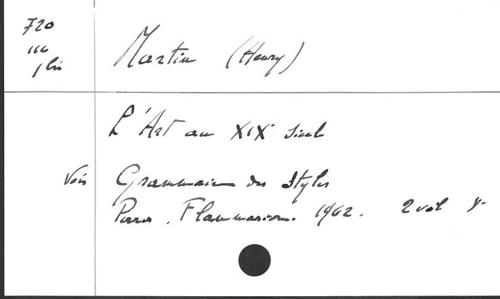 720
Martin (Henry)
L'Art au XIXe siècle
Voir Grammaire des Styles
Paris. Flammarion. 1962. 2 vol